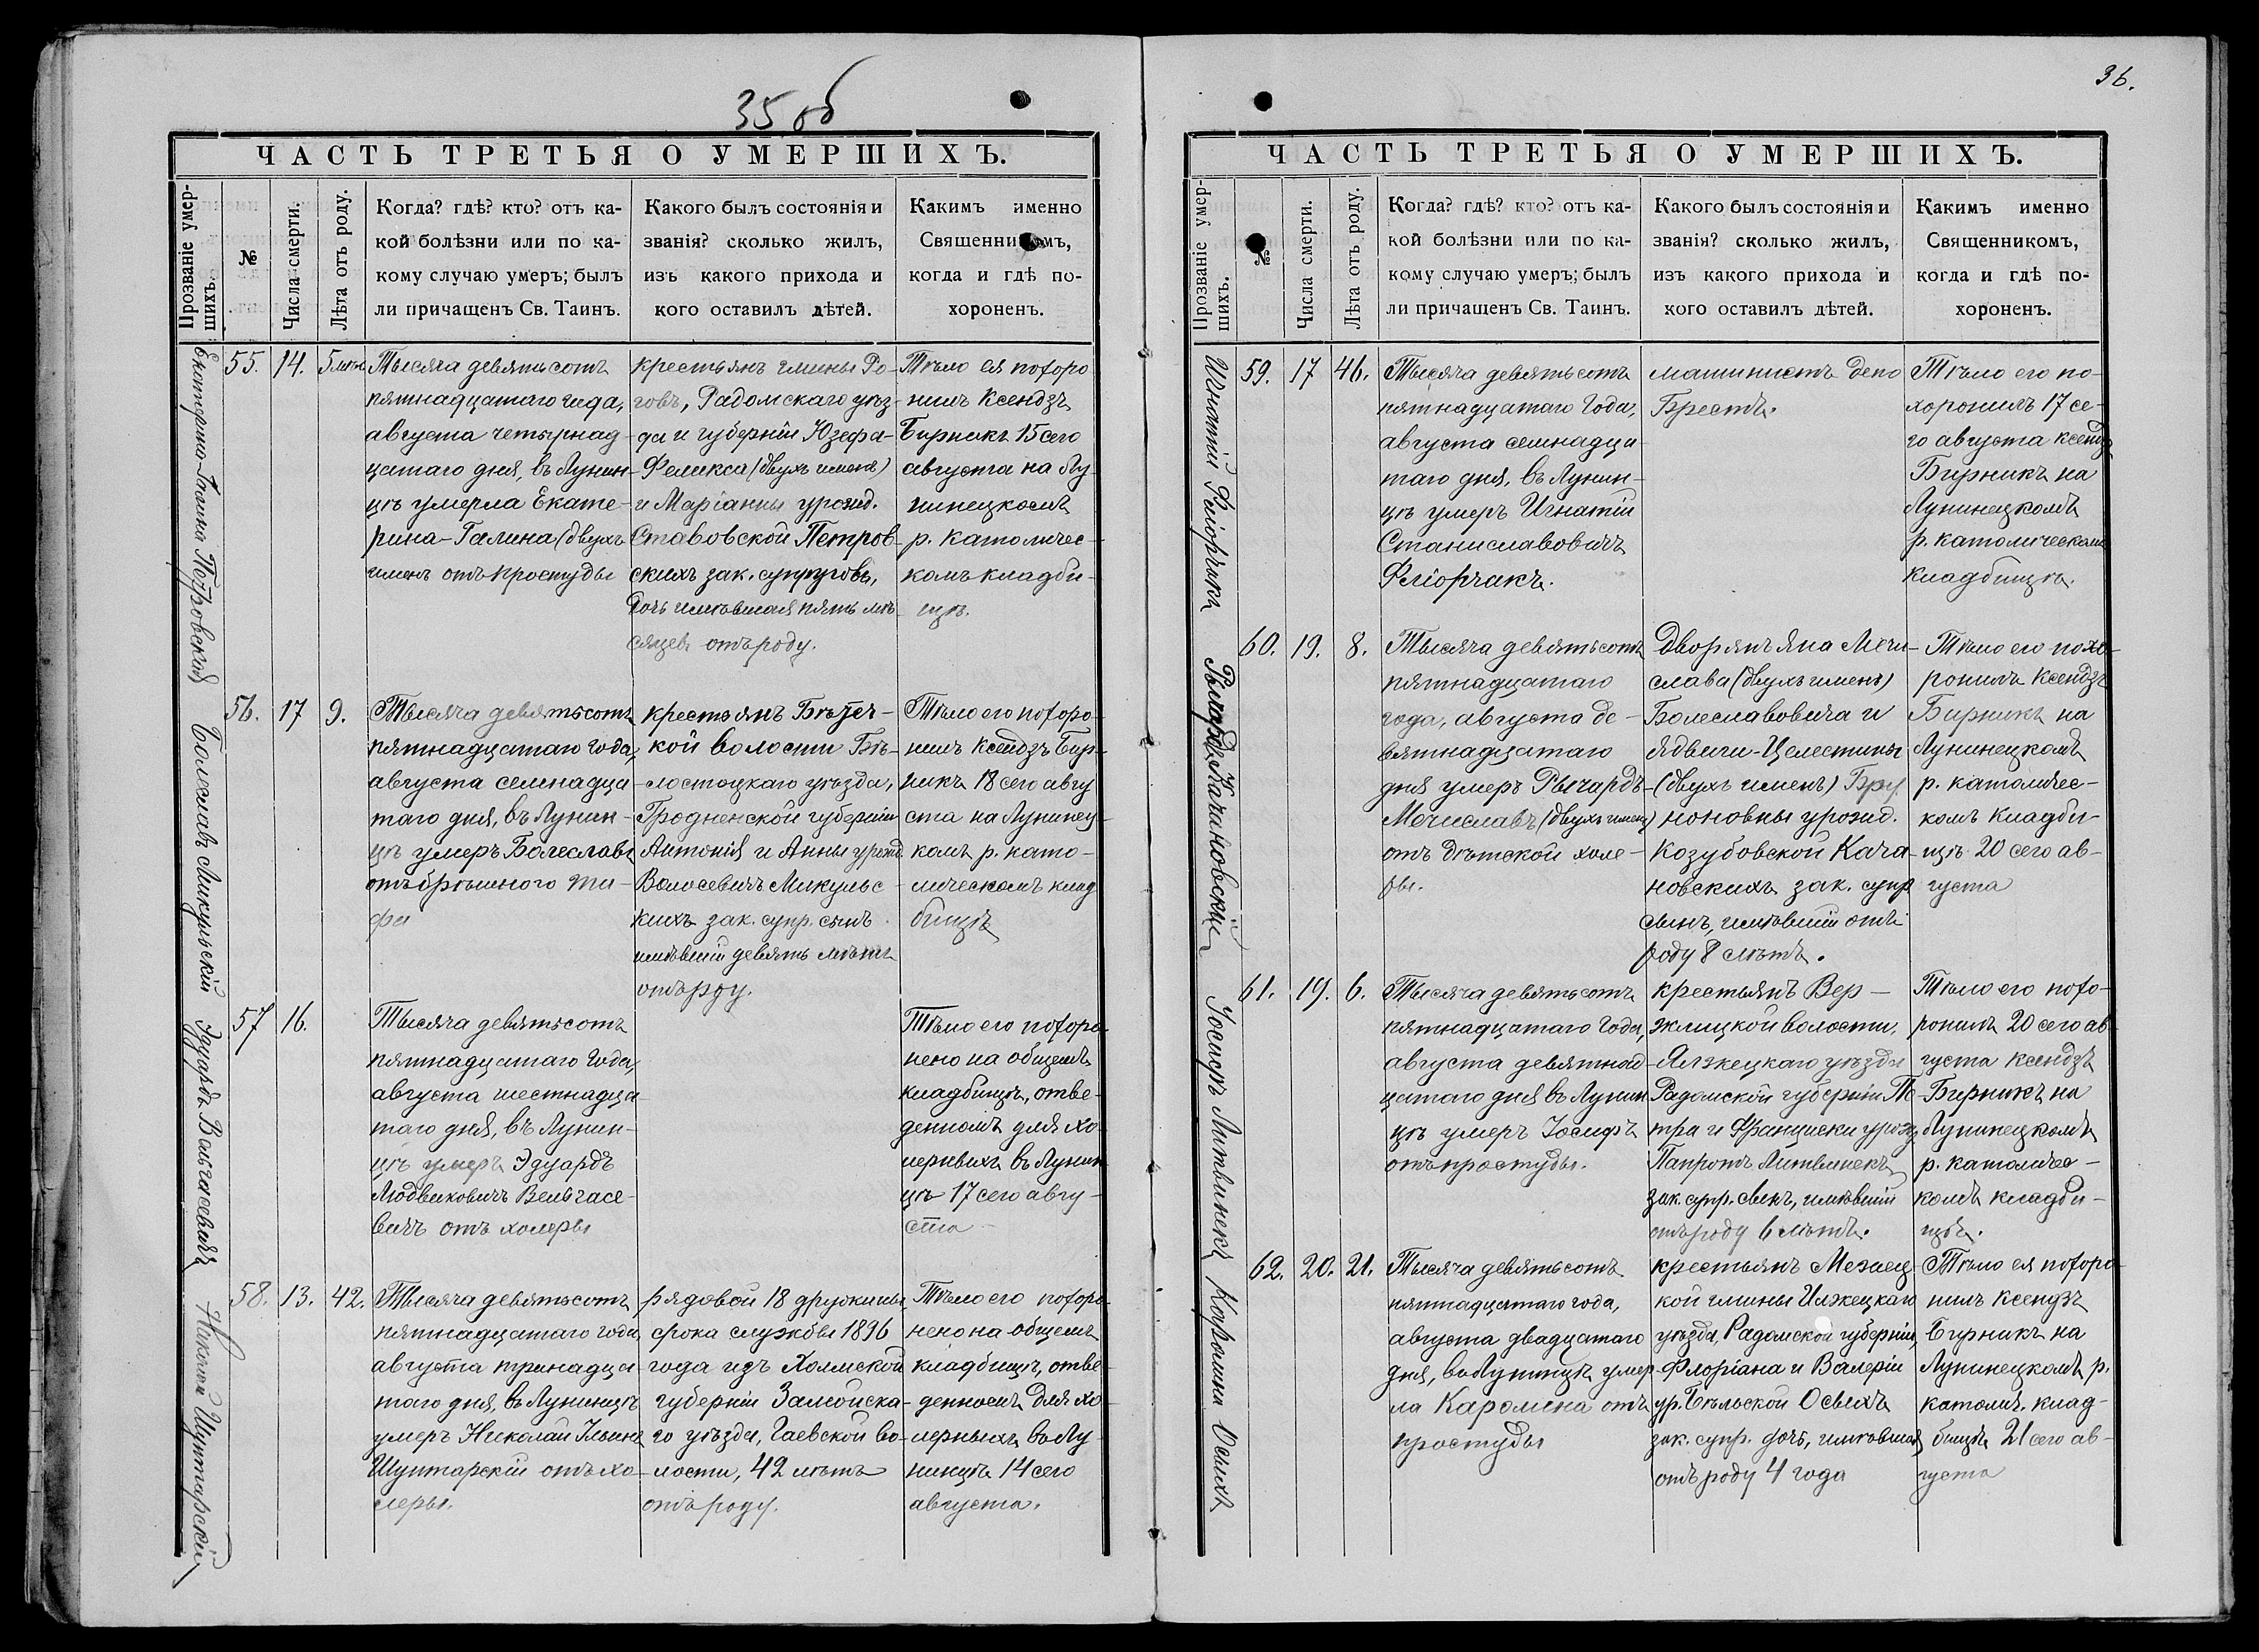 35 об
ЧАСТЬ ТРЕТЬЯ О УМЕРШИХЪ.
Прозваніе умер-
шихъ.
№
Числа смерти.
Лѣта отъ роду.
Когда? гдѣ? кто? отъ ка-
кой болѣзни или по ка-
кому случаю умеръ; былъ
ли причащенъ Св. Таинъ.
Какого былъ состоянія и
званія? сколько жилъ,
изъ какого прихода и
кого оставилъ дѣтей.
Какимъ именно
Священникомъ,
когда и гдѣ по-
хороненъ.
Екатерина-Галина Петровская
55. 14.
Тысяча девятьсотъ
пятнадцатаго года,
августа четырнад-
цатаго дня, въ Лунин-
цѣ умерла Екате-
рина-Галина (двухъ
именъ отъ простуды
крестьянъ гмины Ро-
говъ, Радомскаго уѣз-
да и губерніи Юзефа-
Феликса (двухъ именъ)
и Маріанны урожд.
Ставовской Петров-
скихъ зак. супруговъ,
дочь имѣвшая пять мѣ-
сяцевъ отъ роду.
Тѣло ея похоро-
нилъ Ксендзъ
Бирникъ 15 сего
августа на Лу-
нинецкомъ
р. католичес-
комъ кладби-
щѣ.
Болеславъ Микульскій
56. 17 9.
Тысяча девятьсотъ
пятнадцатаго года,
августа семнадца-
таго дня, въ Лунин-
цѣ умеръ Болеславъ
отъ брюшного ти-
фа
крестьянъ
кой волости Бѣ-
лостоцкаго уѣзда,
Гродненской губерніи
Антонія и Анны урожд.
Волосевичъ Микульс-
кихъ зак. супр. сынъ
имѣвшій девять лѣтъ
отъ роду.
Тѣло его похоро-
нилъ Ксендзъ Бир-
никъ 18 сего авгу
ста на Лунинец-
комъ р. като-
лическомъ клад
бищѣ
Эдуардъ
57 16.
Тысяча девятьсотъ
пятнадцатаго года,
августа шестнадца-
таго дня, въ Лунин-
цѣ умеръ Эдуардъ
Людвиковичъ Вельчасе-
вичъ отъ холеры
Тѣло его похоро-
нено на общемъ
кладбищѣ, отве-
денномъ для хо-
лерныхъ въ Лунин
цѣ 17 сего авгу-
ста
Николай Шунтарскій
58. 13. 42.
Тысяча девятьсотъ
пятнадцатаго года,
августа тринадца-
таго дня, въ Лунинцѣ
умеръ Николай Ильинъ
Шунтарскій отъ хо-
леры.
рядовой 18 дружины
срока службы 1896
года изъ Холмской
губерніи Замойска-
го уѣзда, Гаевской во-
лости, 42 лѣтъ
отъ роду.
Тѣло его похоро-
нено на общемъ
кладбищѣ, отве-
денномъ для хо-
лерныхъ въ Лу-
нинцѣ 14 сего
августа.
36.
ЧАСТЬ ТРЕТЬЯ О УМЕРШИХЪ.
Прозваніе умер-
шихъ.
№
Числа смерти.
Лѣта отъ роду.
Когда? гдѣ? кто? отъ ка-
кой болѣзни или по ка-
кому случаю умеръ; былъ
ли причащенъ Св. Таинъ.
Какого былъ состоянія и
званія? сколько жилъ,
изъ какого прихода и
кого оставилъ дѣтей.
Какимъ именно
Священникомъ,
когда и гдѣ по-
хороненъ.
Игнатій Фліорчакъ
59. 17 46.
Тысяча девятьсотъ
пятнадцатаго года,
августа семнадца-
таго дня, въ Лунин-
цѣ умеръ Игнатій
Станиславовичъ
Фліорчакъ.
машинистъ депо
Брестъ.
Тѣло его по-
хоронилъ 17 се-
го августа ксендз
Бирникъ на
Лунинецкомъ
р. католическомъ
кладбищѣ.
Рычардъ Качановскій
60. 19. 8.
Тысяча девятьсотъ
пятнадцатаго
года, августа де-
вятнадцатаго
дня умеръ Рычардъ-
Мечиславъ (двухъ именъ)
отъ дѣтской холе-
ры.
Дворянъ Яна Мечи-
слава (двухъ именъ)
Болеславовича и
Ядвиги-Целестины
(двухъ именъ) Бру
ноновны урожд.
Козубовской Кача-
новскихъ зак. супр
сынъ, имѣвшій отъ
роду 8 лѣтъ.
Тѣло его похо-
ронилъ Ксендзъ
Бирникъ на
Лунинецкомъ
р. католичес-
комъ кладби-
щѣ 20 сего ав-
густа
Іосифъ Литвинекъ
61. 19. 6.
Тысяча девятьсотъ
пятнадцатаго года,
августа девятнад-
цатаго дня въ Лунин
цѣ умеръ Іосифъ
отъ простуды.
крестьянъ Вер-
жлицкой волости,
Илжецкаго уѣзда
Радомской губерніи Пе-
тра и Францишки урожд
Папротъ Литвинекъ
зак. супр. сынъ, имѣвшій
отъ роду 6 лѣтъ.
Тѣло его похо-
ронилъ 20 сего ав
густа ксендзъ
Бирникъ на
Лунинецкомъ
р. католичес-
комъ кладби-
щѣ.
Каролина Осыхъ
62. 20. 21.
Тысяча девятьсотъ
пятнадцатаго года,
августа двадцатаго
дня, въ Лунинцѣ умер-
ла Каролина отъ
простуды
крестьянъ
кой гмины Илжецкаго
уѣзда, Радомской губерніи,
Флоріана и Валеріи
ур. Бѣльской Осыхъ
зак. супр. дочь, имѣвшая
отъ роду 4 года
Тѣло ея похоро-
нилъ Ксендзъ
Бирникъ на
Лунинецкомъ р.
католич. клад-
бищѣ 21 сего ав-
густа